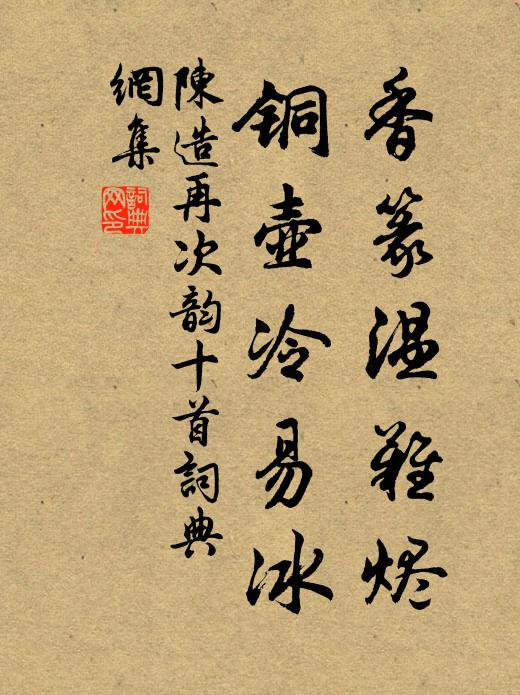 香篆温難烬
铜壺冷易冰
陳造再次韵十首詞典
網集
詞典
网印